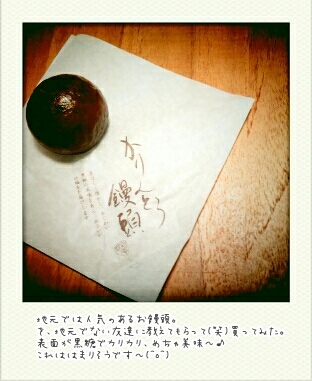 かりんとう
饅頭
地元では人気のあるお饅頭。
で、地元でない友達に教えてもらって(笑)買ってみた。
表面が黒糖でカリカリ、めちゃ美味〜♪
これははまりそうです〜(^o^)